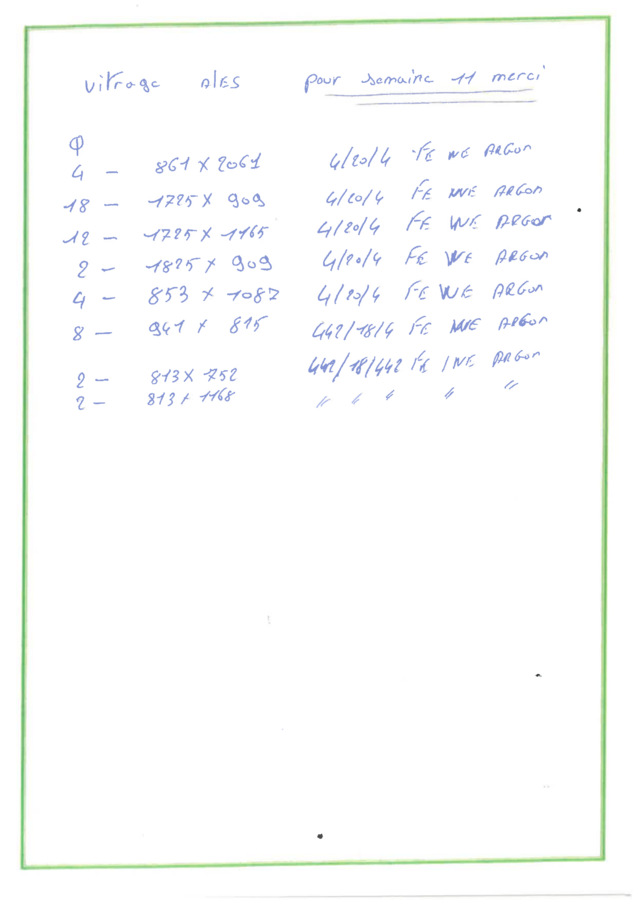 vitrage Ales pour semaine 11 merci
Q
4 - 861 x 2061 4/20/4 FE WE ARGON
18 - 1725 x 909 4/20/4 FE WE ARGON
12 - 1725 x 1165 4/20/4 FE WE ARGON
2 - 1825 x 909 4/20/4 FE WE ARGON
4 - 853 x 1087 4/20/4 FE WE ARGON
8 - 941 x 815 442/18/4 FE WE ARGON
2 - 813 x 752 442/18/442 FE WE ARGON
2 - 813 x 1168 " " " " "